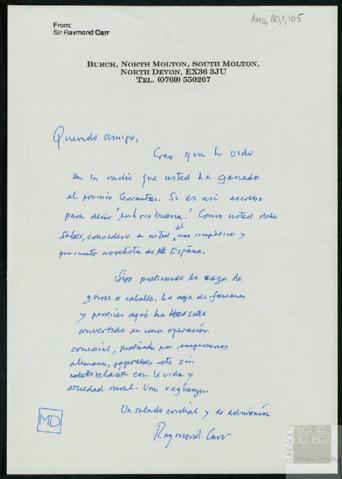 From:
Sir Raymond Carr
AMD,110,1,105
BURCH, NORTH MOLTON, SOUTH MOLTON,
NORTH DEVON, EX36 3JU
TEL. (0769) 550267
Querido amigo,
Creo que he oido
en la radio que usted ha ganado
el premio Cervantes. Si es asi escribo
para decir 'enhorabuena'. Como usted debe
saber, considero a usted el mas simpático y
novelista de España.
Sigo practicando la caza de
zorros a caballo. La caza de faisanes
y perdices aquí ha
convertido en una operación
comercial, practicada por empresarios
alemanes, japoneses etc sin
con la vida y
sociedad rural. Una vergüenza.
Un saludo cordial y de admiración
Raymond Carr
MD
FUNDACIÓN
MIGUEL
DELIBES